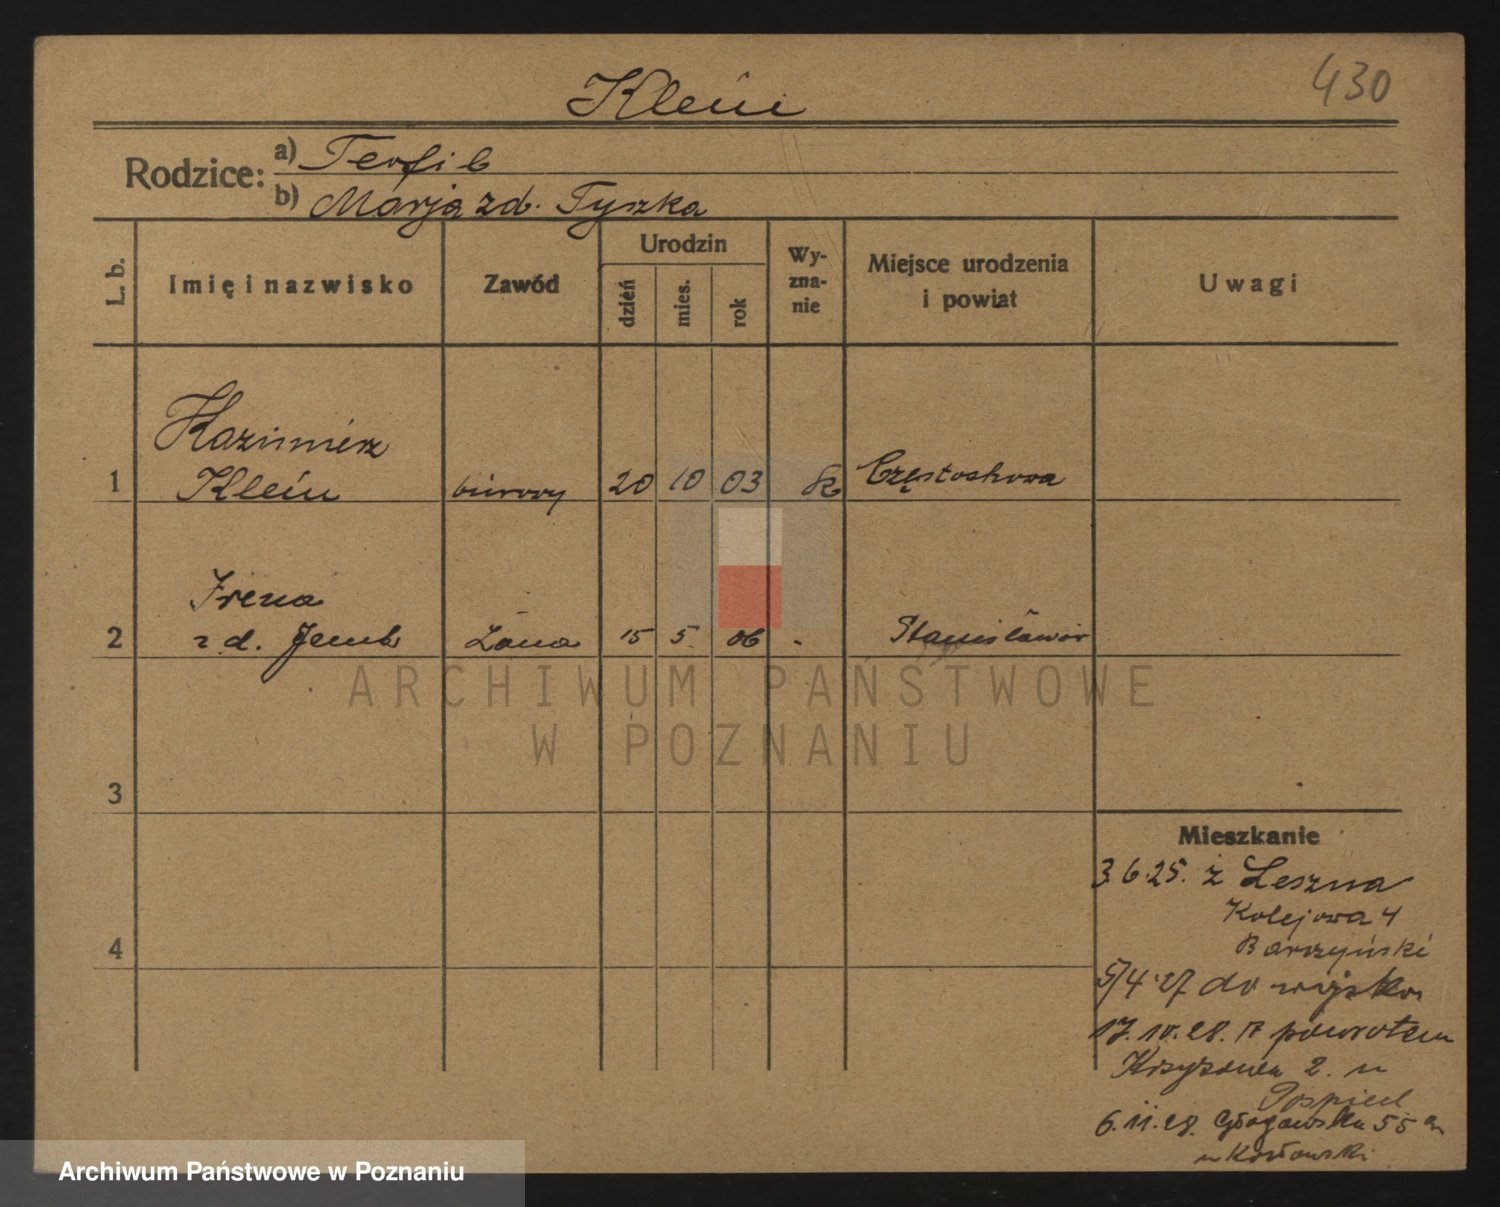 Klein
430
Rodzice:
a) Teofil
b) Marja zd. Tyszka
L. b.
Imię i nazwisko
Zawód
Urodzin
dzień
mies.
rok
Wy-
zna-
nie
Miejsce urodzenia
i powiat
Uwagi
Kazimierz
1 Klein biurowy 20 10 03 k Częstochowa
Irena
2 zd. żona 15 5. 06 - Stanisławów
ARCHIWUM PAŃSTWOWE
W POZNANIU
3
4
Mieszkanie
3.6.25. z Leszna
Kolejowa 4
Barszyński
5/4.27 do wojska
17.10.28. powrotem
2. u
Pospiech
6.11.28. Głogowska 55
u Kozłowski
Archiwum Państwowe w Poznaniu